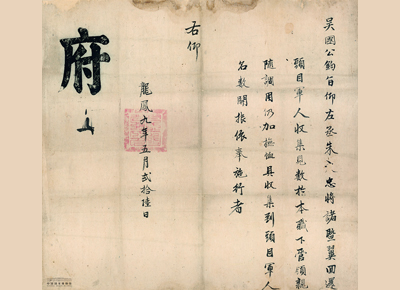 吳國公鈞旨仰左丞朱文忠將諸暨翼回還
頭目軍人收集見數於本職下管領親
隨調用仍加撫恤具收集到頭目軍人
名數開報依奉施行者
右仰
龍鳳九年五月貳拾陸日
府